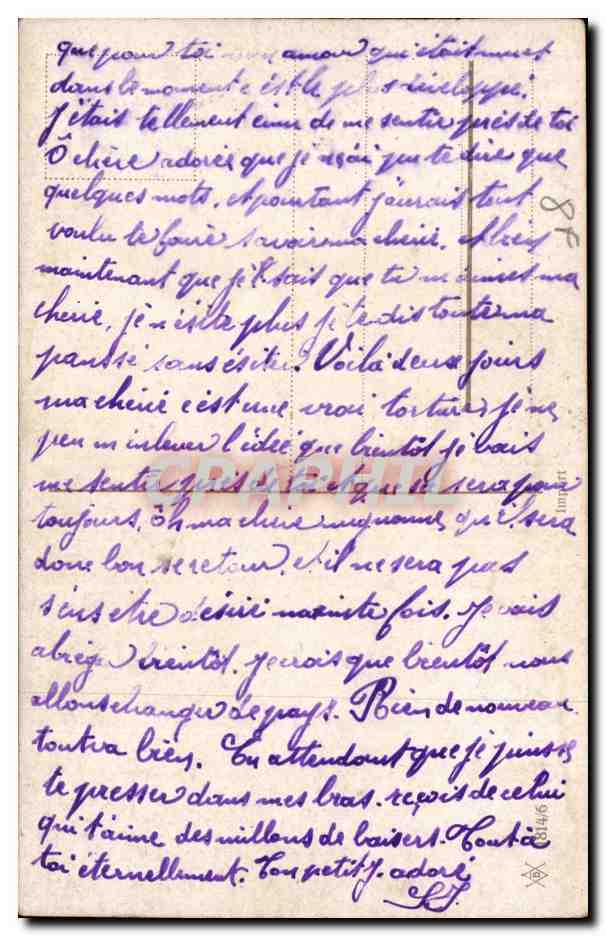 que pour toi mon amour qui était muet
dans le moment c'est le plus développé.
J'étais tellement ému de me sentir près de toi
Ô chère adorée que je n'ai pu te dire que
quelques mots, et pourtant j'aurais tout
voulu te faire savoir ma cherie.
maintenant que je sais que tu m'aimes ma
cherie, je n'ésite plus je te dis toute ma
panssé sans ésiter. Voilà deux jours
ma cherie c'est une vrai torture, je ne
peu m'inlever l'idée que bientôt je vais
me sentir près de toi et que se sera pour
toujours, ôh ma cherie mignonne, qu'il sera
donc bon se retour, et il ne sera pas
sens etre désiré maainte fois. Je vais
abrèger bientôt. Je crois que bientôt nous
allons changer de pays. Rien de nouveau
tout va bien. En attendant que je puisse
te presser dans mes bras. reçois de celui
qui t'aime des millons de baisers. Tout à
toi éternellement. Ton petit J. adoré
8F
CPAPHIL
Import
1814/6
B